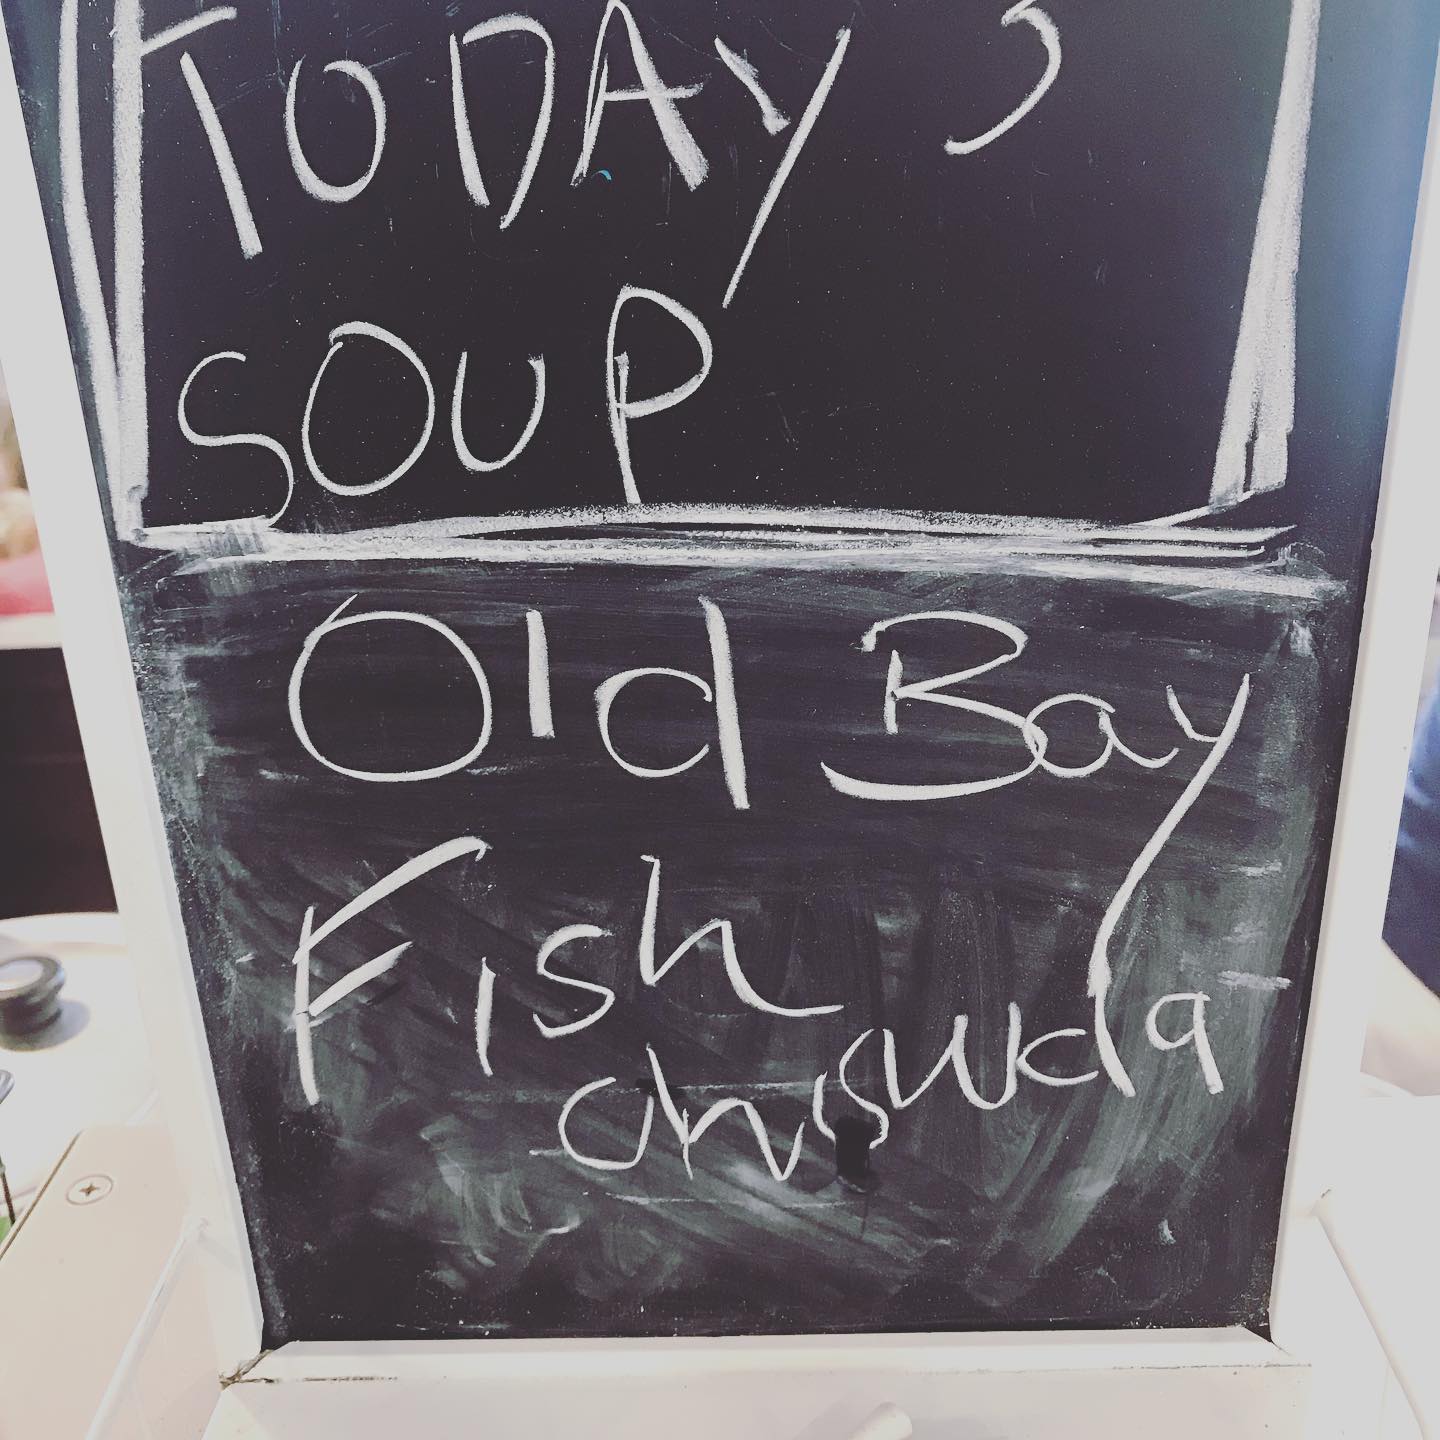 TODAY S
SOUP
Old Bay
Fish
chowda